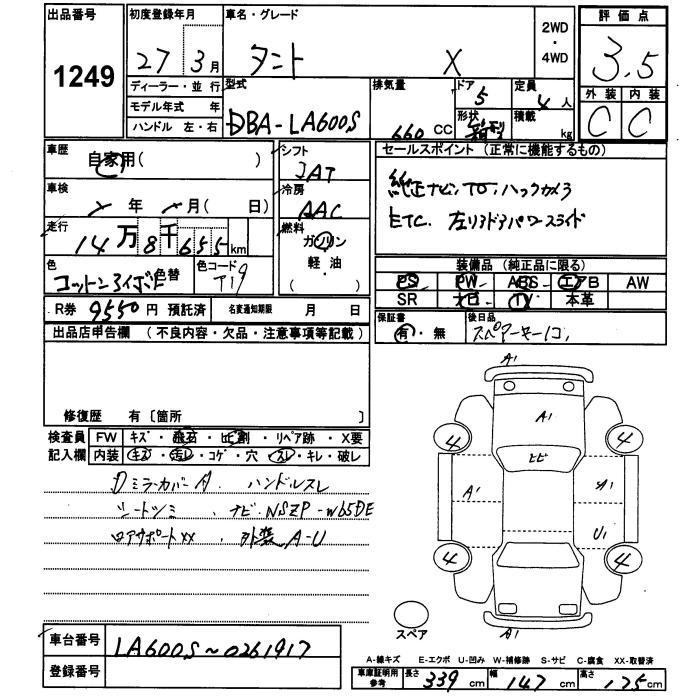 出品番号
1249
初度登録年月
27 3月
車名・グレード
タント X
2WD
・
4WD
評価点
3.5
ディーラー・並行
モデル年式 年
ハンドル 左・右
型式
DBA-LA600S
排気量
660 CC
ドア
5
形状
箱形
定員
4人
積載
kg
外装 内装
C C
車歴
自家用( )
車検
年 月( 日)
走行
14万8千655km
色
コットンアイボE 色替
色コード
T19
シフト
IAT
冷房
AAC
燃料
ガソリン
軽・油
( )
セールスポイント (正常に機能するもの)
純正ナビ,TV,バックカメラ
ETC. 左リアドアパワースライド
装備品 (純正品に限る)
PS PW ABS エアB AW
SR ナビ TV 本革
R券 9550円 預託済 名変通知期限 月 日
保証書
有・無
後日品
スペアーキー1コ,
出品店申告欄 (不良内容・欠品・注意事項等記載)
修復歴 有〔箇所 〕
検査員 FW キズ・飛石・ヒビ割・リペア跡・X要
記入欄 内装 キズ・汚レ・コゲ・穴・スレ・キレ・破レ
Dミラーカバー A ハンドルスレ
シートシミ 、ナビ.NSZP-W65DE
ロアサポートXX . 外装 A-U
A1
A1
4 4
ヒビ
A1 A1
U1
4 4
スペア
A1
車台番号 LA600S~0261917
登録番号
A-線キズ E-エクボ U-凹み W-補修跡 S-サビ C-腐食 XX-取替済
車庫証明用
参考
長さ 339 cm 幅 147 cm 高さ 175 cm